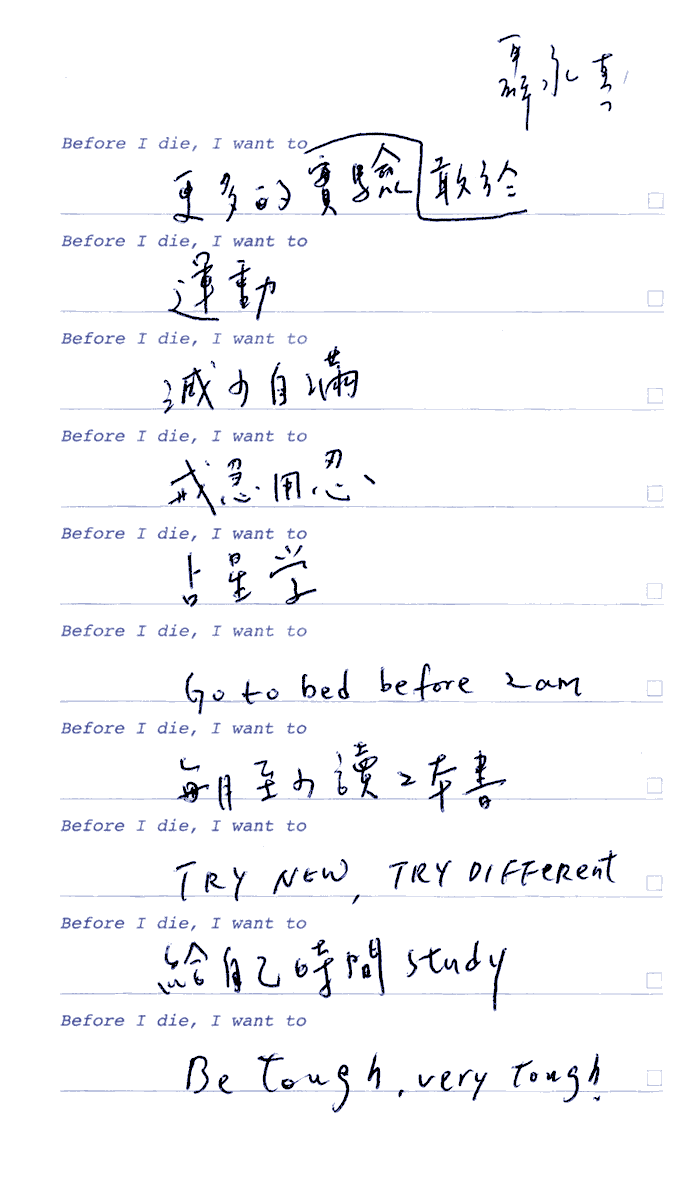 聶永真
Before I die, I want to
更多的實驗 敢於
Before I die, I want to
運動
Before I die, I want to
減少自滿
Before I die, I want to
戒急用忍、
Before I die, I want to
占星学
Before I die, I want to
Go to bed before 2am
Before I die, I want to
每月至少讀2本書
Before I die, I want to
TRY NEW, TRY DIFFERENT
Before I die, I want to
給自己時間 study
Before I die, I want to
Be Tough, very Tough!